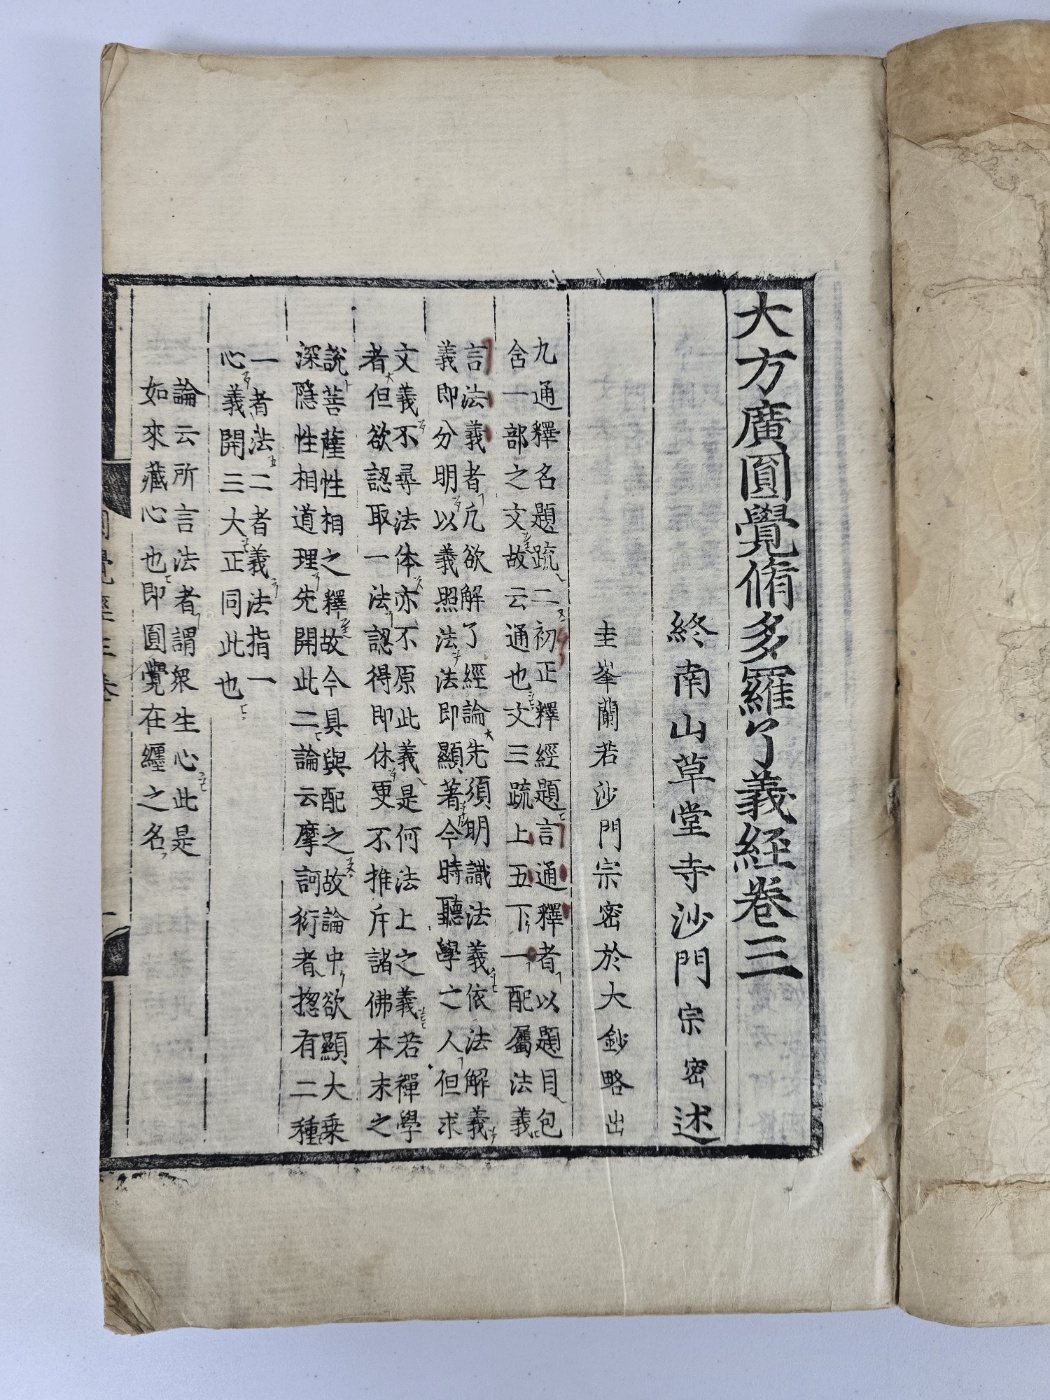 大方廣圓覺脩多羅了義経卷三
終南山草堂寺沙門宗密述
圭峯蘭若沙門宗密於大鈔略出
九通釋名題疏二初正釋經題言通釋者以題目包
含一部之文故云通也文三疏上五下一配屬法義
言法義者凢欲解了經論先須明識法義依法解義
義即分明以義照法法即顯著今時聽學之人但求
文義不尋法体亦不原此義是何法上之義若禪學
者但欲認取一法認得即休更不推斥諸佛本末之
說菩薩性相之釋故今具與配之故論中欲顯大乗
深隱性相道理先開此二論云摩訶衍者揔有二種
一者法二者義法指一
心義開三大正同此也
論云所言法者謂衆生心此是
如來藏心也即圓覺在纏之名